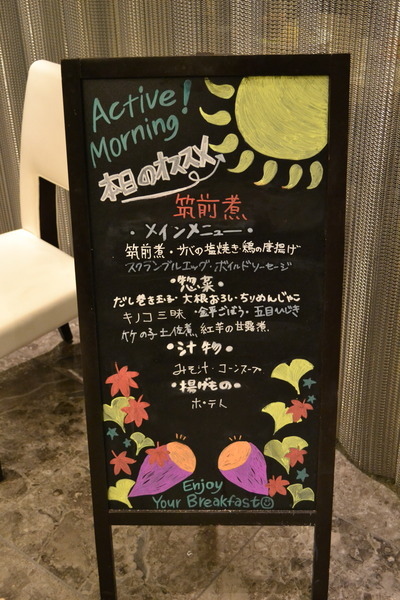 Active!
Morning
本日のオススメ
筑前煮
・メインメニュー・
筑前煮・サバの塩焼き・鶏の唐揚げ
スクランブルエッグ・ボイルドソーセージ
・惣菜・
だし巻き玉子・大根おろし・ちりめんじゃこ
キノコ三昧・金平ごぼう・五目ひじき
竹の子土佐煮、紅芋の甘露煮
・汁物・
みそ汁・コーンスープ
・揚げもの・
ポテト
Enjoy
Your Breakfast☺